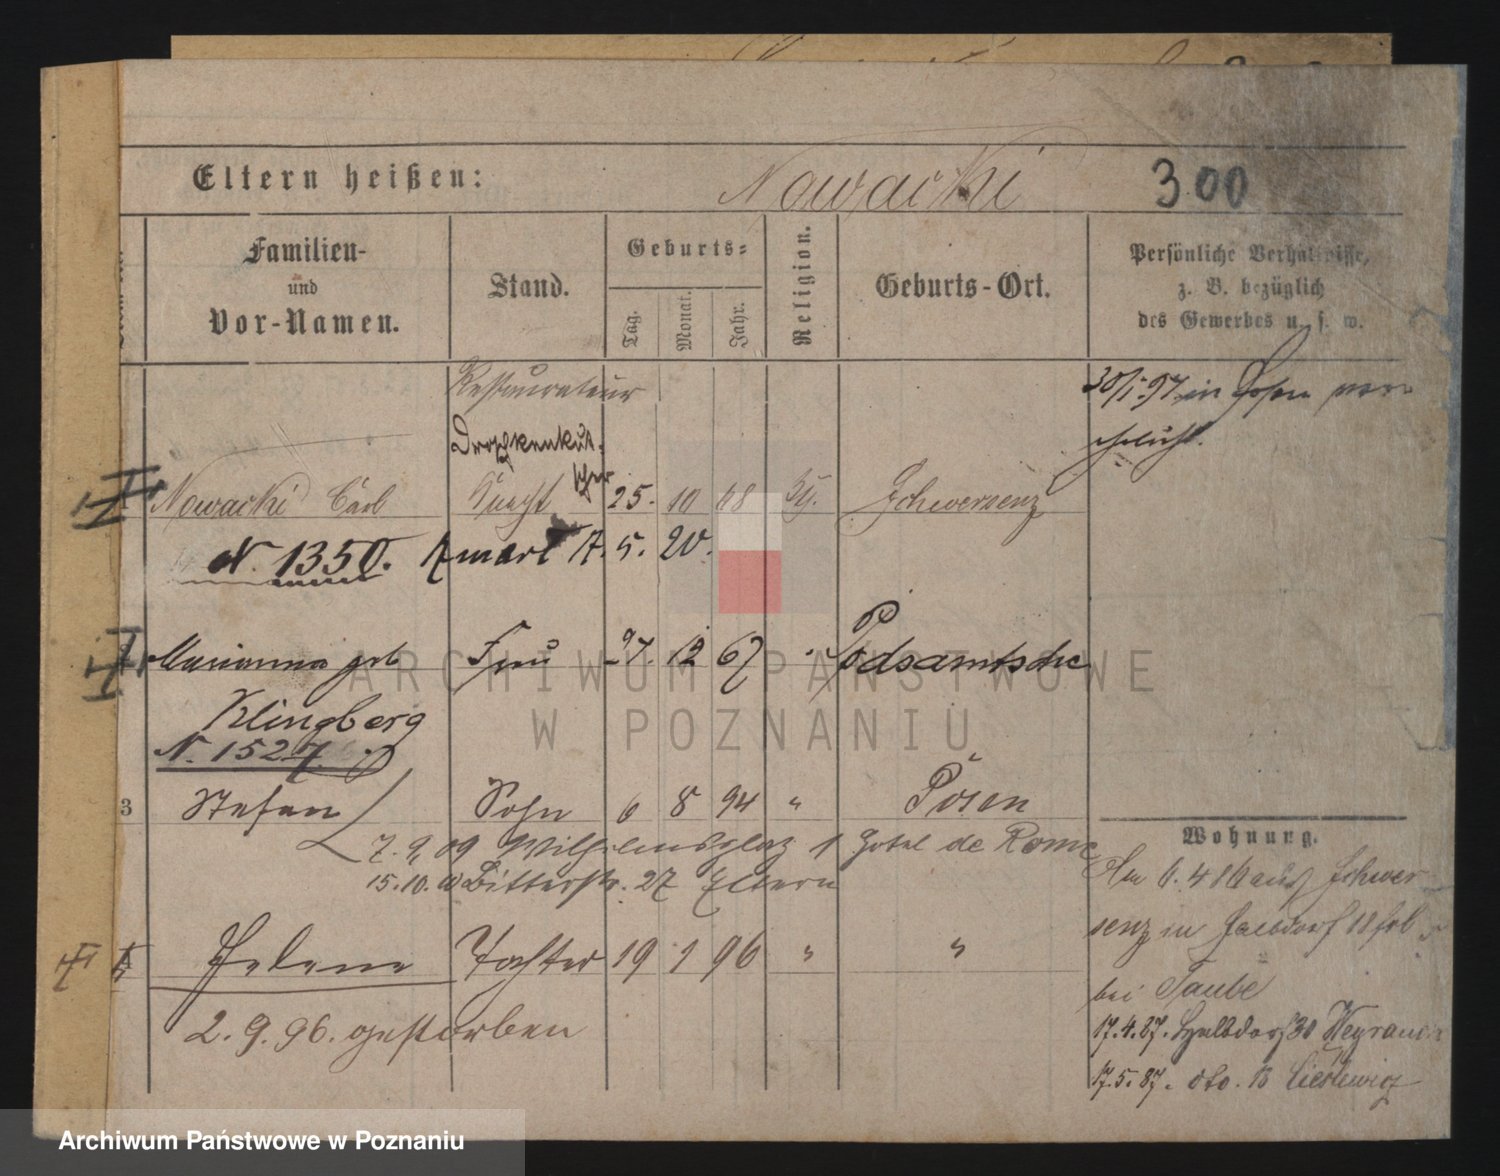 Eltern heißen: Nowacki 300
Familien- und Vor-Namen.
Stand.
Geburts=
Tag.
Monat.
Jahr.
Religion.
Geburts-Ort.
Persönliche Verhältnisse,
z. B. bezüglich
des Gewerbes u. s. w.
Restaurateur
30/1. 97 in Posen verehelicht.
Droschkenkutscher
Nowacki Carl Knecht 25. 10 68 Schwersenz
N. 1350. 17. 5. 20.
Marianna geb Frau 27. 12 67
Klingberg
N. 1527.
3 Stefan Sohn 6 8 94 " Posen
7. 9. 09 Wilhelmsplatz 1 Hotel de Rome
15.10. Ritterstr. 27 Eltern
Helene Tochter 19 1 96 " "
2. 9. 96. gestorben
Wohnung.
Am 6. 4 86 aus Schwersenz in
bei Taube
17.4.87. Halbdorf 30
17.5.87. dto. 13
ARCHIWUM PAŃSTWOWE
W POZNANIU
Archiwum Państwowe w Poznaniu